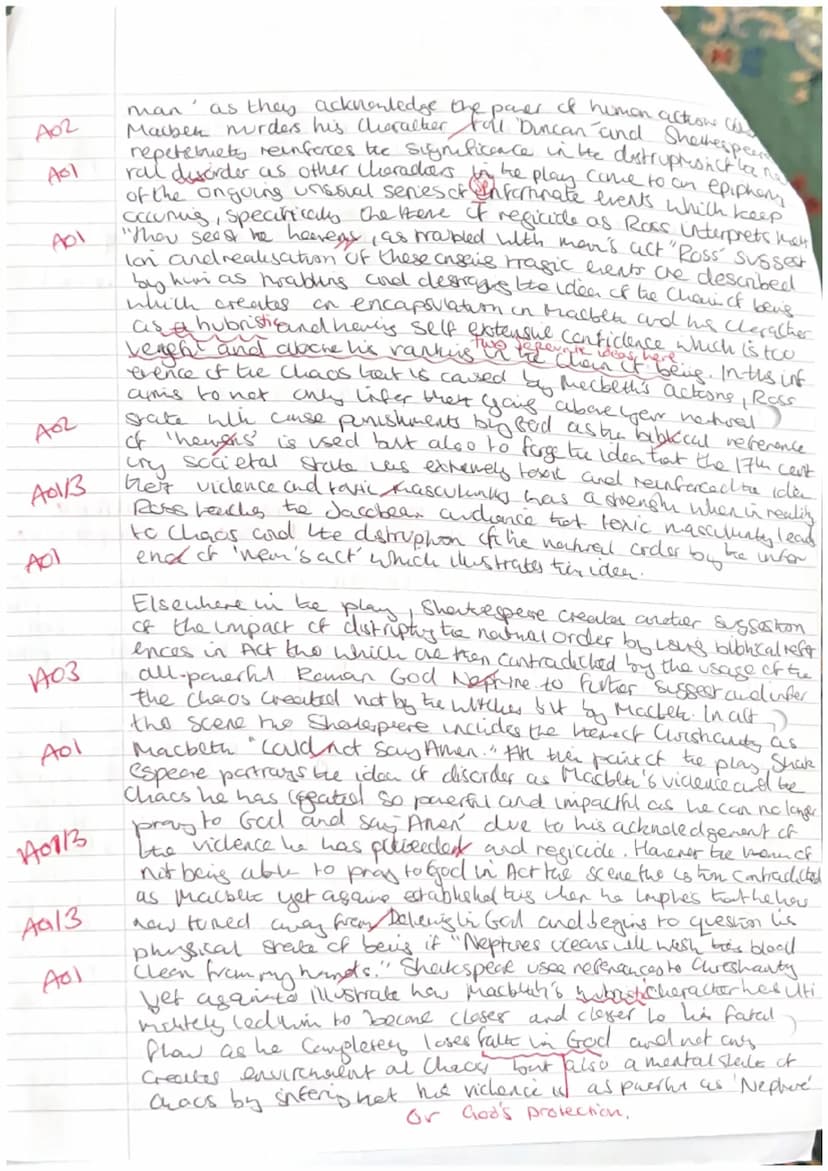 man' as they acknowledge the power of human action
AO2 Macbeth murders his character foil 'Duncan' and Shakespeare
repetitively reinforces the significance in the distruption of the na
AO1 ral disorder as other characters in the play come to an epiphany
of the ongoing unusual series of unfortunate events which keep
occuring, specifically the theme of regicide as Ross interprets that
AO1 "thou seest the heavens, as troubled with man's act" Ross' suggest
ion and realisation of these ongoing tragic events are described
by him as troubling and destroys the idea of the Chain of being
which creates an encapsulation on Macbeth and his character
as a hubristic and having self extensive confidence which is too
two separate ideas here
and above his ranking in the chain of being. In this inf
erence of the chaos that is caused by Macbeth's actions, Ross
aims to not only infer that going above your natural
AO2 state will cause punishments by God as the biblical reference
of 'heavens' is used but also to forge the idea that the 17th cent
ury societal state was extremely toxic and reinforced the idea
AO1/3 that violence and toxic masculinity was a strength when in reality
Ross teaches the Jacobean audience that toxic masculinity lead
to chaos and the distruption of the natural order by the infer
AO1 ence of 'men's act' which illustrates this idea.
Elsewhere in the play, Shakespeare creates another suggestion
of the impact of distrupting the natural order by using biblical refer
ences in Act two which are then contradicted by the usage of the
AO3 all-powerful Roman God Neptune to further suggest and infer
the chaos created not by the witches but by Macbeth. In act
two scene two Shakespeare includes the theme of Christianity as
AO1 Macbeth "could not say Amen." At this point of the play, Shak
espeare portrays the idea of disorder as Macbeth's violence and the
chaos he has created so powerful and impactful as he can no longer
pray to God and say 'Amen' due to his acknowledgement of
AO1/3 the violence he has and regicide. However the theme of
not being able to pray to God in Act two scene two is then contradicted
as Macbeth yet again established this when he implies that he has
AO1/3 now turned away from believing in God and begins to question his
physical state of being if "Neptunes oceans will wash this blood
AO1 clean from my hands." Shakespeare uses references to Christianity
yet again to illustrate how Macbeth's hubristic character has ulti
mately led him to become closer and closer to his fatal
flaw as he completely loses faith in God and not only
creates environmental chaos but also a mental state of
chaos by infering that his violence is as powerful as 'Neptune'
or God's protection.